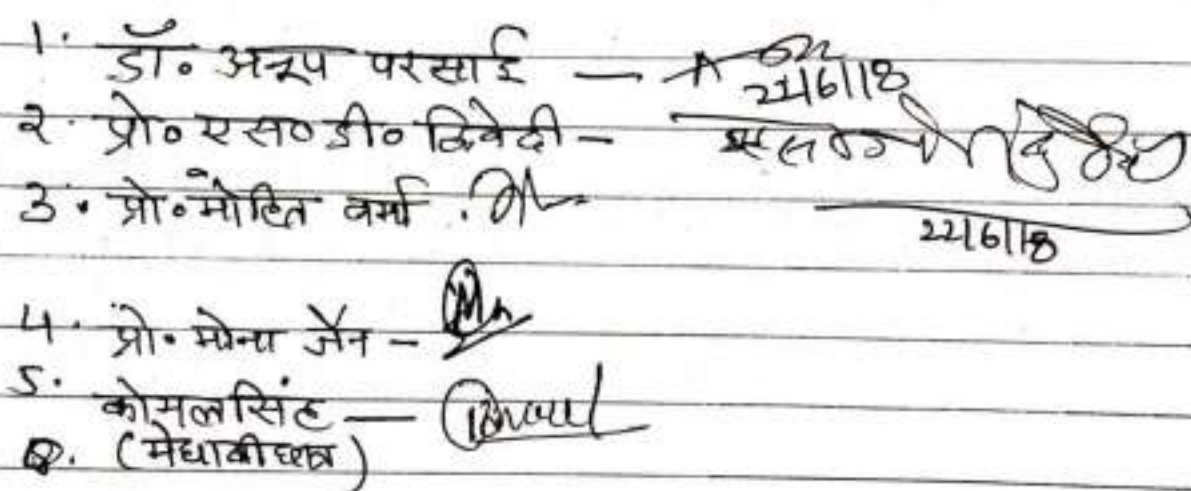 1. डॉ॰ अनूप परसाई —
22/6/18
२. प्रो॰ एस॰ डी॰ द्विवेदी -
3. प्रो॰ मोहित वर्मा .
22/6/18
4. प्रो॰ मोना जैन -
5. कोमलसिंह —
(मेधावी छात्र)